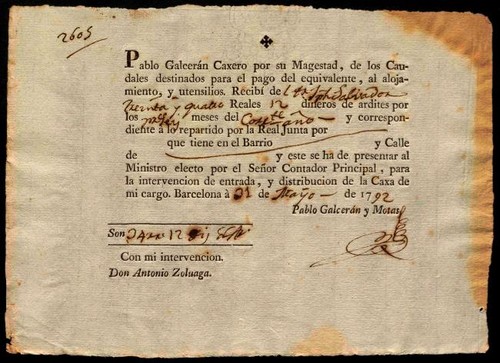 2605
Pablo Galcerán Caxero por su Magestad, de los Cau-
dales destinados para el pago del equivalente, al aloja-
miento, y utensilios. Recibí de Salvador
treinta y quatro Reales 12 dineros de ardites por
los meses del año y correspon-
diente à lo repartido por la Real Junta por
que tiene en el Barrio y Calle
de y este se ha de presentar al
Ministro electo por el Señor Contador Principal, para
la intervencion de entrada, y distribucion de la Caxa de
mi cargo. Barcelona à 31 de Mayo de 1792
Pablo Galcerán y Motas
Son 34 12
Con mi intervencion.
Don Antonio Zoluaga.